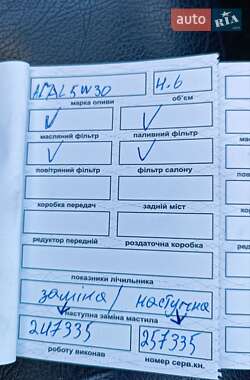 auto RIA
5W30 4.6
марка оливи об'єм
масляний фільтр паливний фільтр
повітряний фільтр фільтр салону
коробка передач задній міст
редуктор передній роздаточна коробка
показники лічильника
заміна / наступна
наступна заміна мастила
247335 257335
роботу виконав номер серв.кн.